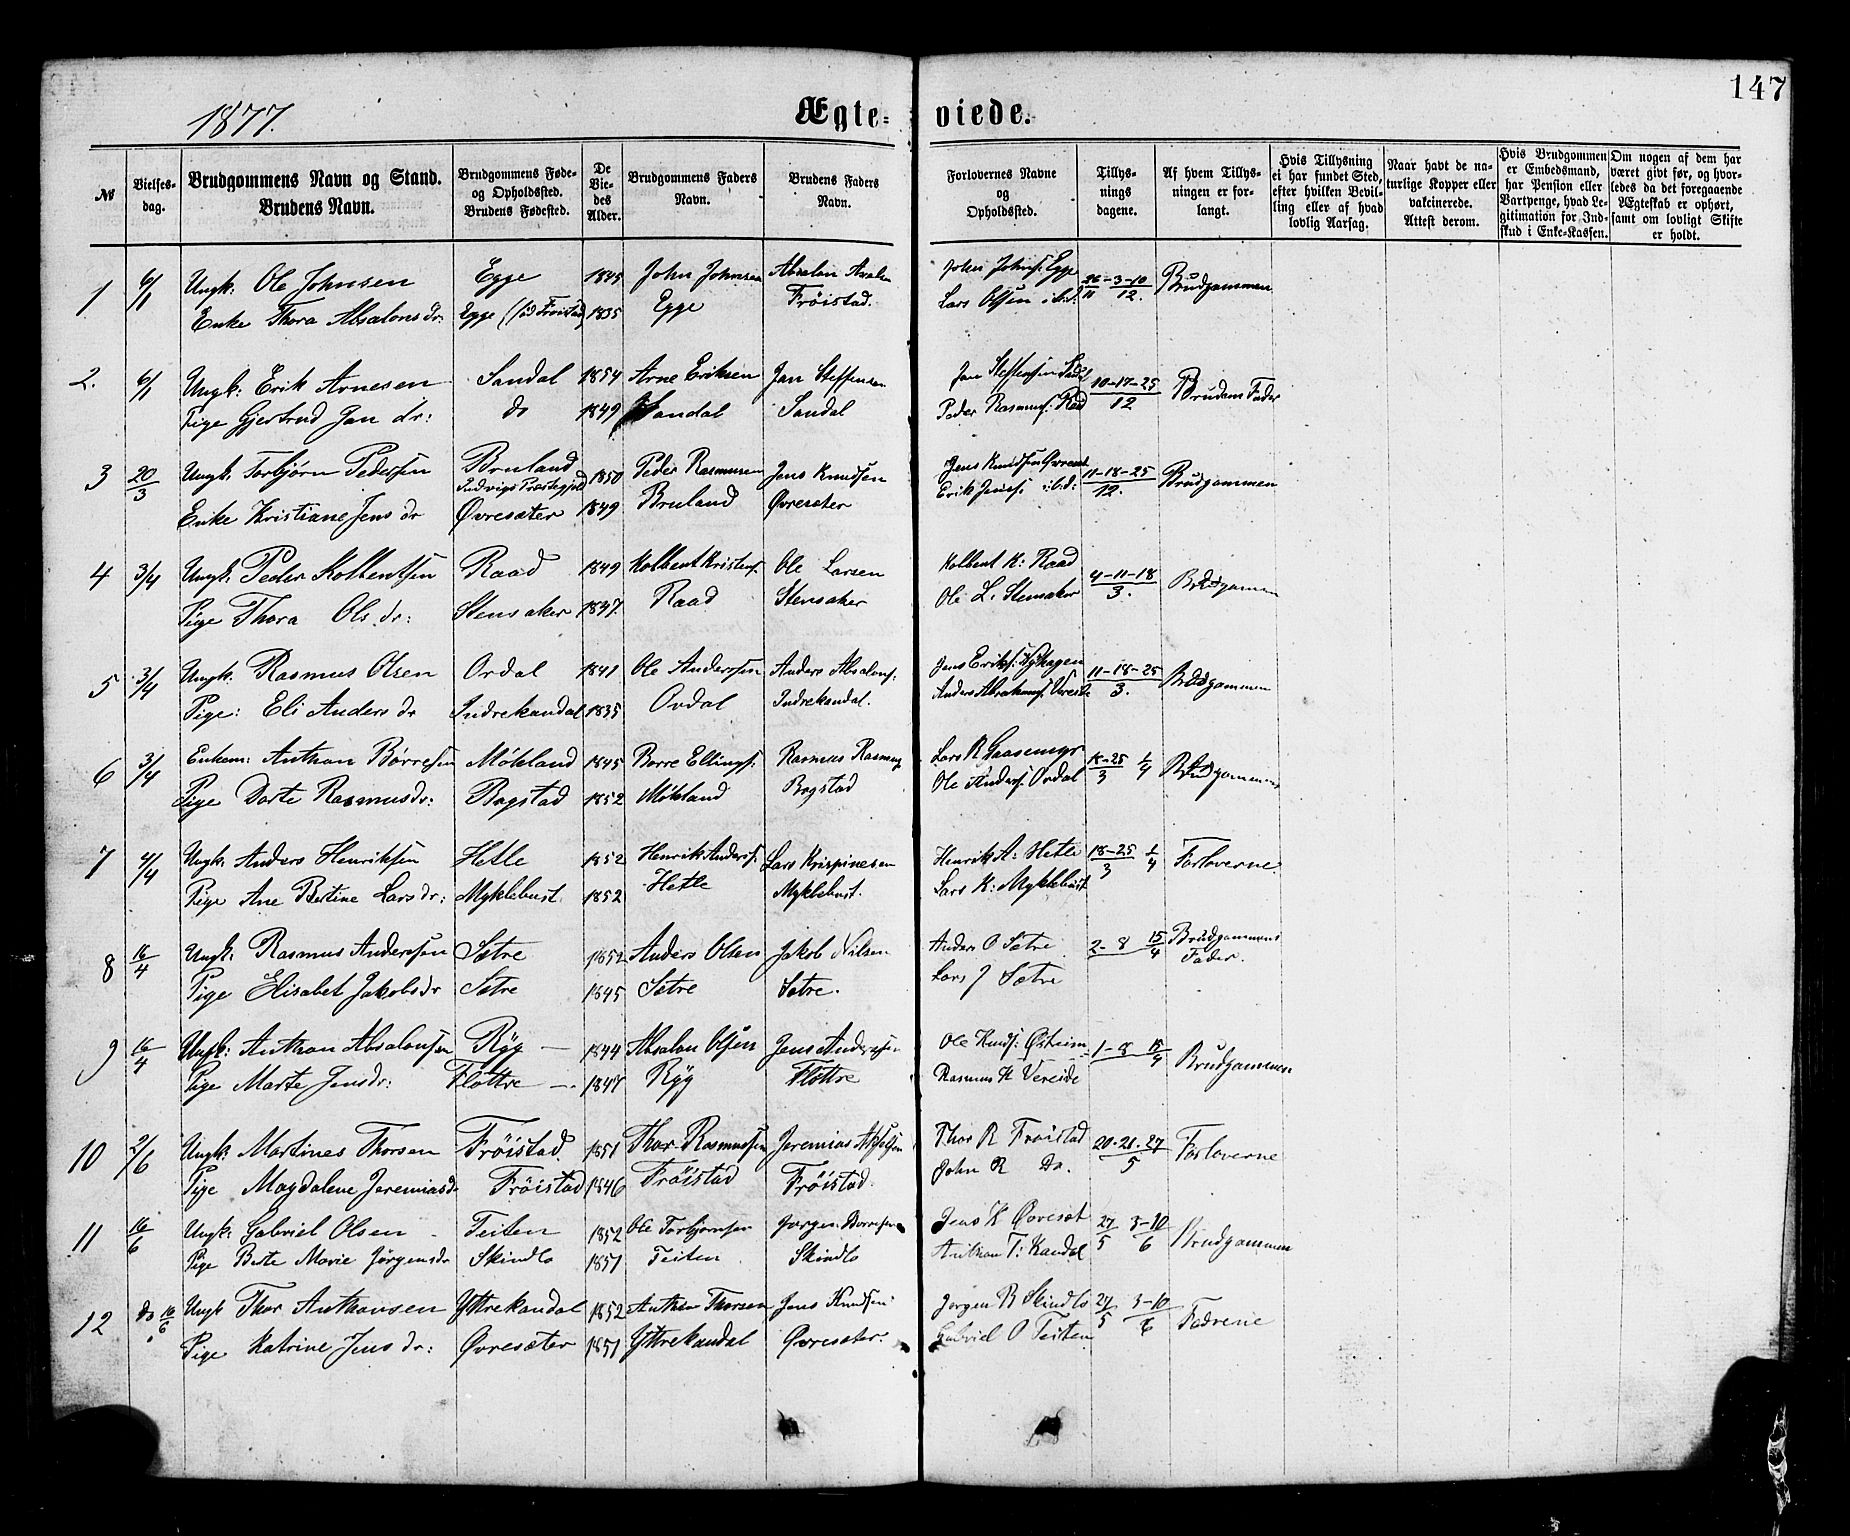 147
1877.
Ægte-viede.
№
Vielses-dag.
Brudgommens Navn og Stand.
Brudens Navn.
Brudgommens Føde-
og Opholdssted.
Brudens Fødested.
De
Vie-
des
Alder.
Brudgommens Faders
Navn.
Brudens Faders
Navn.
Forlovernes Navne
og
Opholdssted.
Tillys-
nings
dagene.
Af hvem Tillys-
ningen er for-
langt.
Hvis Tillysning
ei har fundet Sted,
efter hvilken Bevil-
ling eller af hvad
lovlig Aarsag.
Naar havt de na-
turlige Kopper eller
vakcinerede.
Attest derom.
Hvis Brudgommen
er Embedsmand,
har Pension eller
Vartpenge, hvad Le-
gitimation for Ind-
skud i Enke-Kassen.
Om nogen af dem har
været givt før, og hvor-
ledes da det foregaaende
Ægteskab er ophørt,
samt om lovligt Skifte
er holdt.
1 6/1 Ungk: Ole Johnsen Egge 1845 John Johnsen Absalon John Johns: Egge 26/11 - 3-10/12. Brudgommen
Enke Thora Absalons dr: Egge (fød Frøistad) 1835 Egge Frøistad. Lars Olsen ibd:
2. 6/1 Ungk: Erik Arnesen Sandal 1854 Arne Eriksen Jan Steffensen Jan Steffensen 10-17-25/12 Brudens Fader
Pige Gjertrud Jan dr: do 1849 Sandal Sandal Peder Rasmus:
3 20/3 Ungk. Torbjørn Pedersen Bruland Indvigs Præstegjeld 1850 Peder Rasmusen Jens Knudsen Jens Knudsen 11-18-25/12. Brudgommen
Enke Kristiane Jens dr Øvresæter 1849 Bruland Øvresæter Erik Jens: i.b.d:
4 3/4 Ungk. Peder Kolbentsen Raad 1849 Kolbent Kristens: Ole Larsen Kolbent K: Raad 4-11-18/3. Brudgommen
Pige Thora Ols dr: Stensaker 1847. Raad Stensaker Ole L. Stensaker
5 3/4 Ungk: Rasmus Olsen Ordal 1841 Ole Anderssen Anders Absalons: Jens Eriks: 11-18-25/3. Brudgommen
Pige: Eli Anders dr Indrekandal 1835 Ordal Indrekandal. Anders
6 3/4 Enkem: Anthon Børresen Møkland 1845 Børre Ellings: Rasmus Rasmus Lars R Gaasemyr 18-25/3 1/4 Brudgommen
Pige Dorte Rasmusdr: Bogstad 1852 Møkland Bogstad Ole Anders: Ordal
7 4/4 Ungk: Anders Henriksen Hetle 1852 Henrik Anders: Lars Krispinesen Henrik A: Hetle 18-25/3 1/4 Forloverne.
Pige Ane Bertine Lars dr: Myklebust. 1852 Hetle Myklebust. Lars K: Myklebust
8 16/4 Ungk. Rasmus Anderssen Sætre 1852 Anders Olsen Jakob Nilsen Anders O Sætre 2-8 15/4 Brudgommens Fader.
Pige Elisabet Jakobsdr Sætre 1845 Sætre Sætre. Lars J Sætre
9 16/4 Ungk: Anthon Absalonsen Ryg 1844 Absalon Olsen Jens Anderssen Ole Knuds: 1-8 15/4 Brudgommen
Pige Marte Jensdr: Fløttre 1847 Ryg Fløttre Rasmus K Vereide
10 2/6 Ungk: Martines Thorsen Frøistad. 1851 Thor Rasmussen Jeremias Thor R Frøistad 20.21.27/5 Forloverne
Pige Magdalene Jeremiasdr Frøistad 1846 Frøistad Frøistad. John R Do.
11 16/6 Ungk: Gabriel Olsen Teiten 1852 Ole Torbjørnsen Jørgen Børresen Jens K 27/5 3-10/6 Brudgommen
Pige Berte Marie Jørgensdr Skindlo 1851 Teiten Skindlo Anthon T: Kandal
12 do 16/6 Ungk Thor Anthonsen Yttrekandal 1852 Anthon Thorsen Jens Knudsen Jørgen B Skindlo 27/5 3-10/6 Fædrene
Pige Katrine Jens dr: Øvresæter 1851 Yttrekandal Øvresæter. Gabriel O Teiten